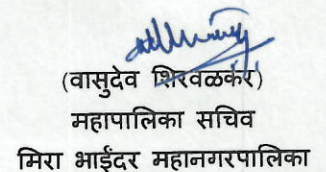 (वासुदेव शिरवळकर)
महापालिका सचिव
मिरा भाईंदर महानगरपालिका